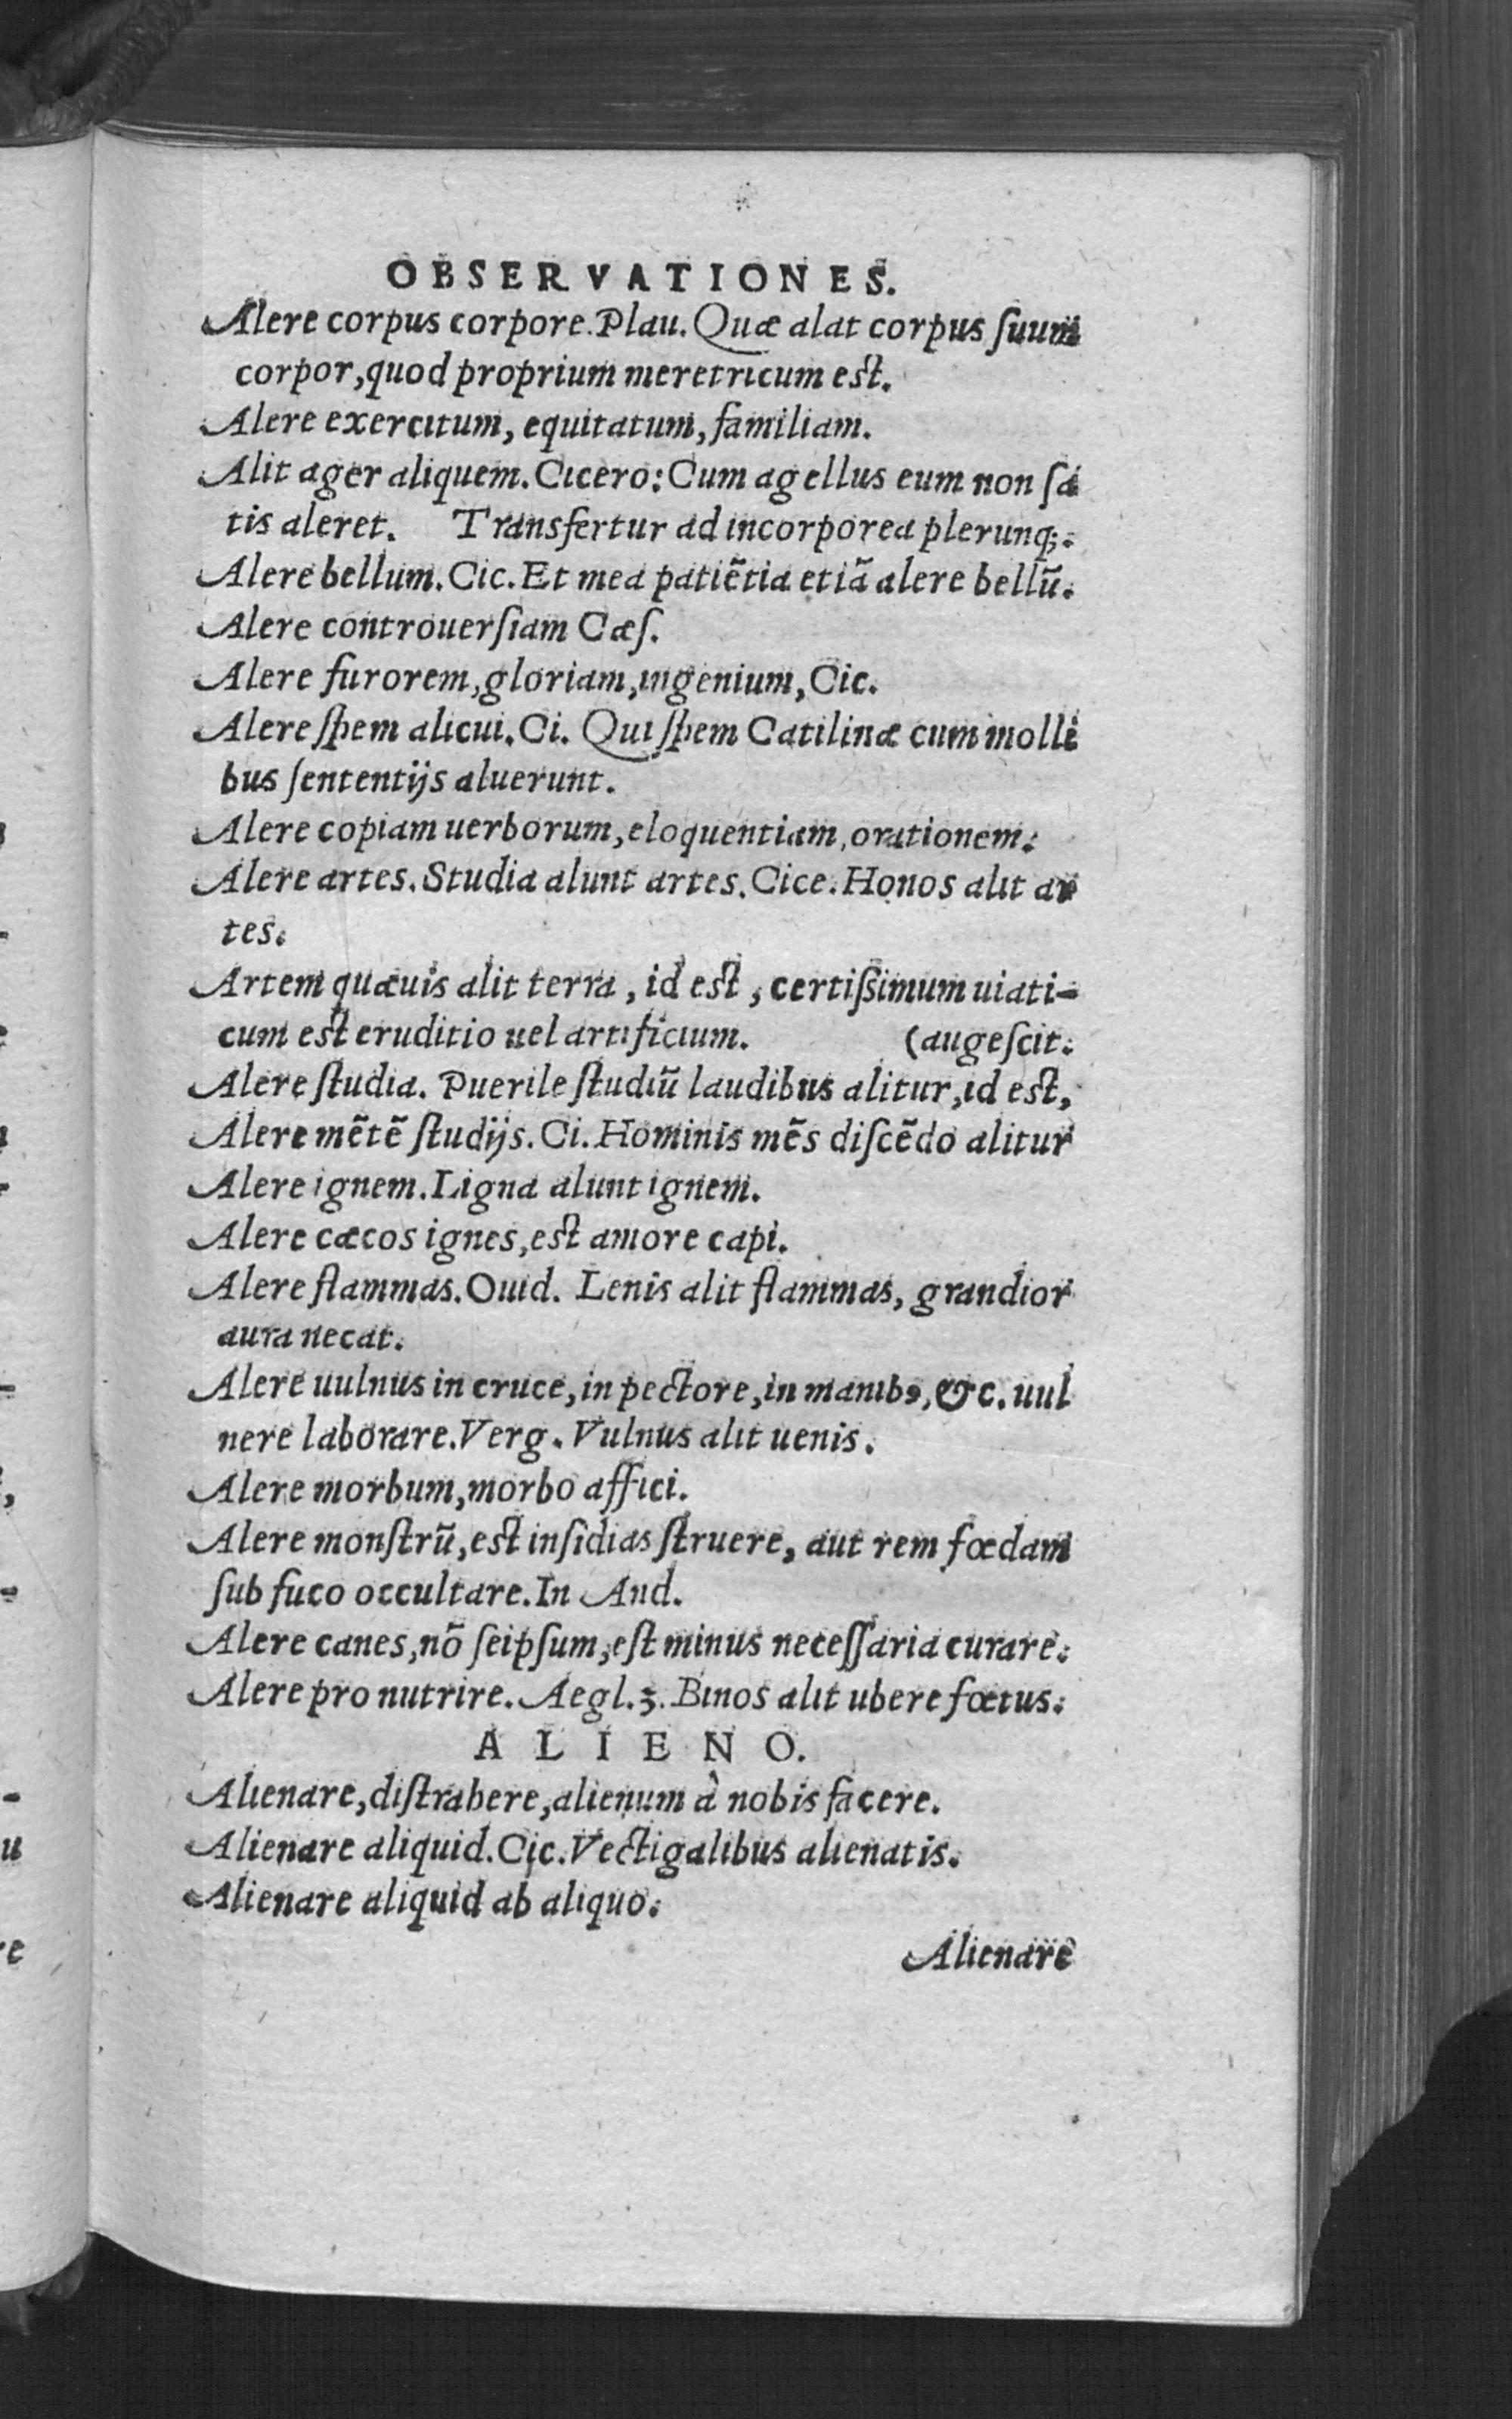 OBSERVATIONES.
Alere corpus corpore. Plau. Quæ alat corpus ſuum
corpor, quod proprium meretricum est.
Alere exercitum, equitatum, familiam.
Alit ager aliquem. Cicero: Cum agellus eum non ſa
tis aleret. Transfertur ad incorporea plerunq;.
Alere bellum. Cic. Et mea patiẽtia etiã alere bellũ.
Alere controuerſiam Cæſ.
Alere furorem, gloriam, ingenium, Cic.
Alere ſpem alicui. Ci. Qui ſpem Catilinæ cum molli
bus ſententijs aluerunt.
Alere copiam uerborum, eloquentiam, orationem.
Alere artes. Studia alunt artes. Cice. Honos alit ar
tes.
Artem quæuis alit terra, id est, certiſsimum uiati-
cum est eruditio uel artificium. (augeſcit.
Alere ſtudia. Puerile ſtudiũ laudibus alitur, id est,
Alere mẽtẽ ſtudijs. Ci. Hominis mẽs diſcẽdo alitur
Alere ignem. Ligna alunt ignem.
Alere cæcos ignes, est amore capi.
Alere flammas. Ouid. Lenis alit flammas, grandior
aura necat.
Alere uulnus in cruce, in pectore, in manibꝰ, &c. uul
nere laborare. Verg. Vulnus alit uenis.
Alere morbum, morbo affici.
Alere monſtrũ, est inſidias ſtruere, aut rem fœdam
ſub fuco occultare. In And.
Alere canes, nõ ſeipſum, eſt minus neceſſaria curare.
Alere pro nutrire. Aegl. 3. Binos alit ubere fœtus.
ALIENO.
Alienare, diſtrahere, alienum â nobis facere.
Alienare aliquid. Cic. Vectigalibus alienatis.
Alienare aliquid ab aliquo.
Alienare